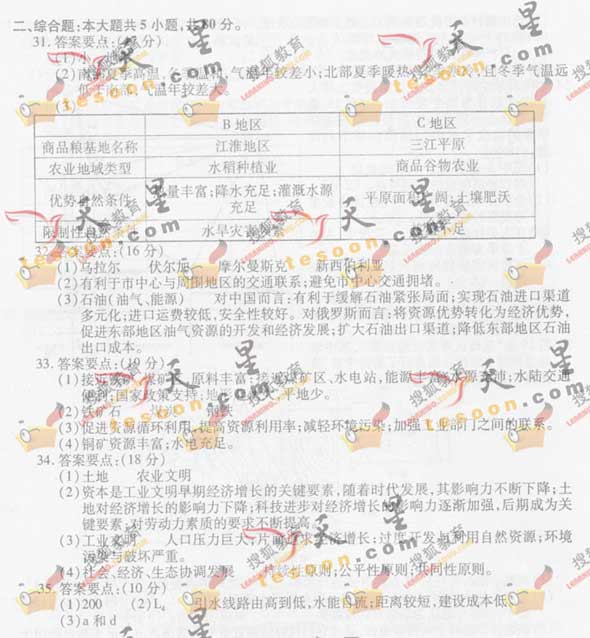 二、综合题:本大题共5小题,共80分。
31.答案要点:(分)
(1)小
(2)南部夏季高温,冬季温和,气温年较差小;北部夏季暖热,且冬季气温远
低于南部,气温年较差大。
(3)
B地区 C地区
商品粮基地名称 江淮地区 三江平原
农业地域类型 水稻种植业 商品谷物农业
优势自然条件 热量丰富;降水充足;灌溉水源充足 平原面积广阔;土壤肥沃
限制性自然条件 水旱灾害频繁 不足
32.答案要点:(16分)
(1)乌拉尔 伏尔加 摩尔曼斯克 新西伯利亚
(2)有利于市中心与周围地区的交通联系;避免市中心交通拥堵。
(3)石油(油气、能源) 对中国而言:有利于缓解石油紧张局面;实现石油进口渠道
多元化;进口运费较低,安全性较好。对俄罗斯而言:将资源优势转化为经济优势,
促进东部地区油气资源的开发和经济发展;扩大石油出口渠道;降低东部地区石油
出口成本。
33.答案要点:(分)
(1)接近铁矿、煤矿,原料丰富;接近煤矿区、水电站,能源丰富;水源充沛;水陆交通
便利;国家政策支持;地形,平地少。
(2)铁矿石 钢铁
(3)促进资源循环利用,提高资源利用率;减轻环境污染;加强工业部门之间的联系。
(4)铜矿资源丰富;水电充足。
34.答案要点:(18分)
(1)土地 农业文明
(2)资本是工业文明早期经济增长的关键要素,随着时代发展,其影响力不断下降;土
地对经济增长的影响力下降;科技进步对经济增长的影响力逐渐加强,后期成为关
键要素;对劳动力素质的要求不断提高。
(3)工业文明 人口压力巨大;片面追求经济增长;过度开发与利用自然资源;环境
污染与破坏严重。
(4)社会、经济、生态协调发展 持续性原则;公平性原则;共同性原则。
35.答案要点:(10分)
(1)200 (2)L₄ 引水线路由高到低,水能自流;距离较短,建设成本低。
(3)a和d